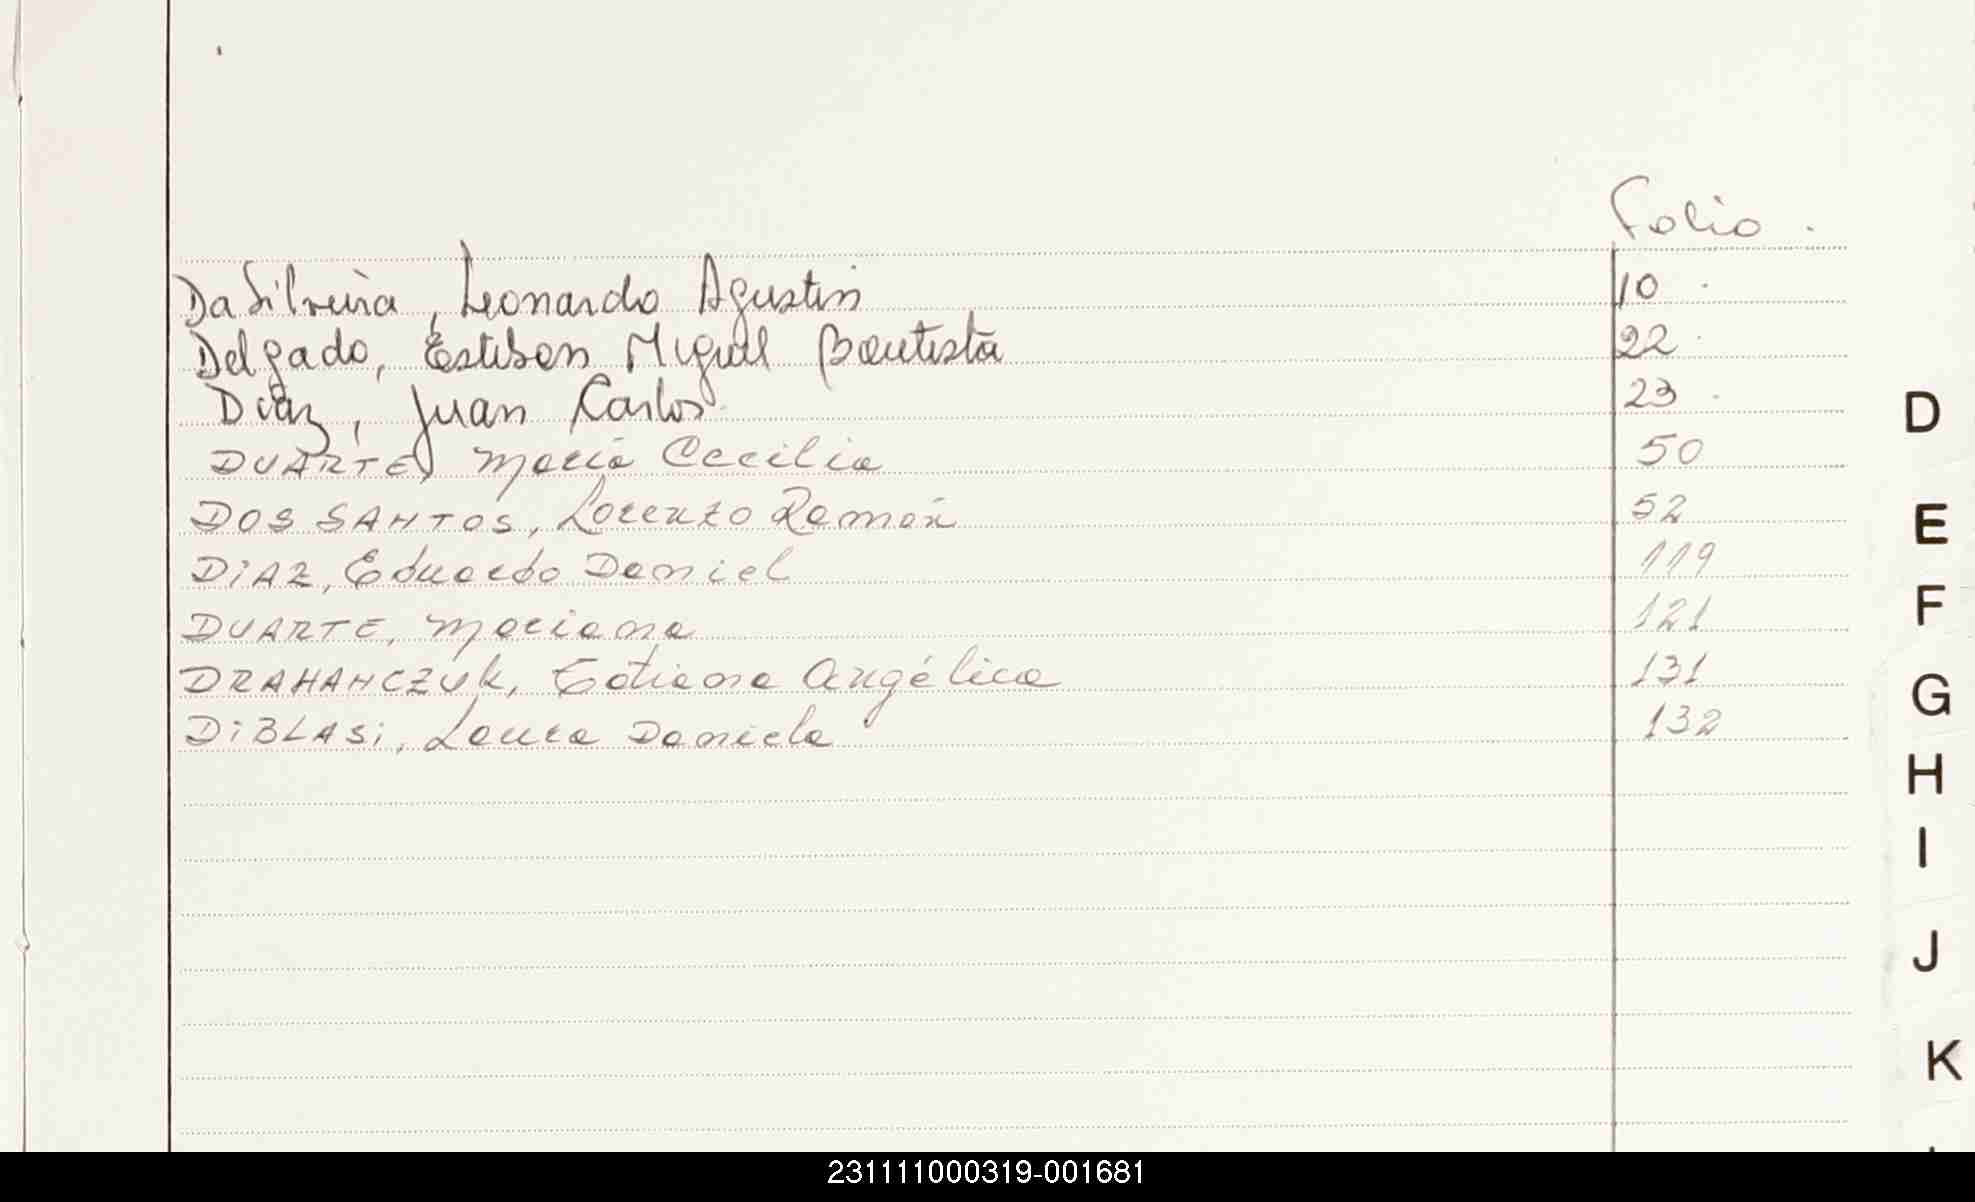 Folio.
Da Silveira, Leonardo Agustin 10
Delgado, Esteban Miguel Bautista 22
Diaz, Juan Carlos 23
DUARTE, María Cecilia 50
DOS SANTOS, Lorenzo Ramón 52
DiAZ, Eduardo Daniel 119
DUARTE, Mariana 121
DRAHANCZUK, Tatiana Angélica 131
DiBLASi, Laura Daniela 132
D
E
F
G
H
I
J
K
231111000319-001681